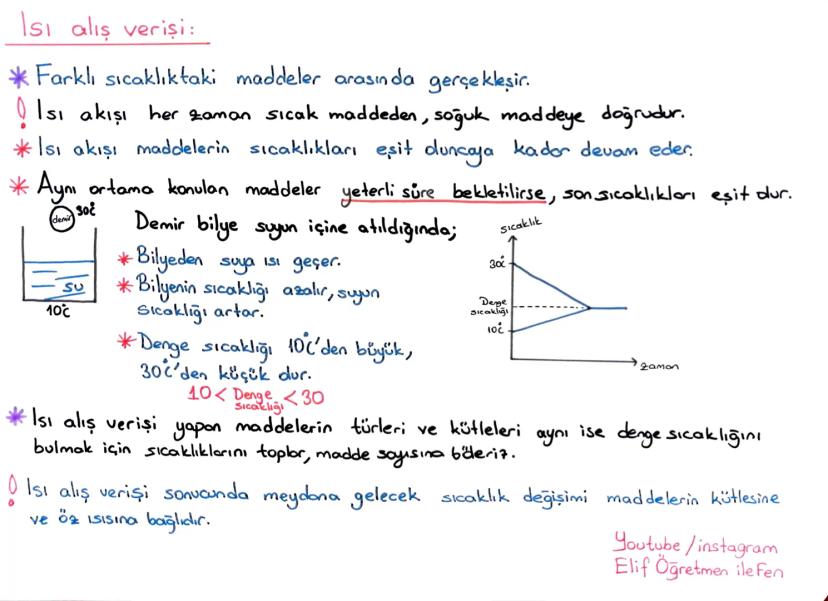 Isı alış verişi:
* Farklı sıcaklıktaki maddeler arasında gerçekleşir.
! Isı akışı her zaman sıcak maddeden, soğuk maddeye doğrudur.
* Isı akışı maddelerin sıcaklıkları eşit oluncaya kadar devam eder.
* Aynı ortama konulan maddeler yeterli süre bekletilirse, son sıcaklıkları eşit olur.
demir 30°C
SU
10°C
Demir bilye suyun içine atıldığında;
* Bilyeden suya ısı geçer.
* Bilyenin sıcaklığı azalır, suyun
sıcaklığı artar.
* Denge sıcaklığı 10°C'den büyük,
30°C'den küçük olur.
10 < Denge Sıcaklığı < 30
sıcaklık
30°C
Denge
sıcaklığı
10°C
zaman
* Isı alış verişi yapan maddelerin türleri ve kütleleri aynı ise denge sıcaklığını
bulmak için sıcaklıklarını toplar, madde sayısına böleriz.
! Isı alış verişi sonucunda meydana gelecek sıcaklık değişimi maddelerin kütlesine
ve öz ısısına bağlıdır.
Youtube / instagram
Elif Öğretmen ile Fen